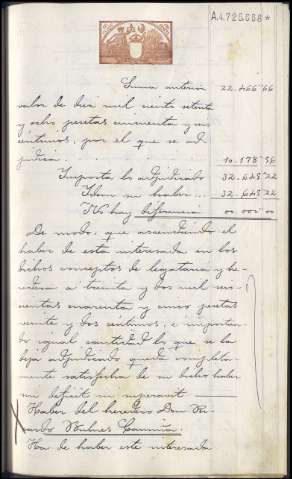 A.4.725.608*
Suma anterior 22.466'66
valor de diez mil ciento setenta
y ocho pesetas cincuenta y seis
céntimos, por el que se ad-
judica. 10.178'56
Importa lo adjudicado 32.645'22
Idem su haber... 32.645'22
No hay diferencia 00.000'00
De modo, que ascendiendo el
haber de esta interesada en los
dichos conceptos de legataria y he-
redera a treinta y dos mil seis-
cientas cuarenta y cinco pesetas
veinte y dos céntimos, e importan-
do igual cantidad lo que se la
deja adjudicado queda completa-
mente satisfecha de su dicho haber
sin déficit ni superavit
Haber del heredero Don Ri-
cardo
Ha de haber este interesado